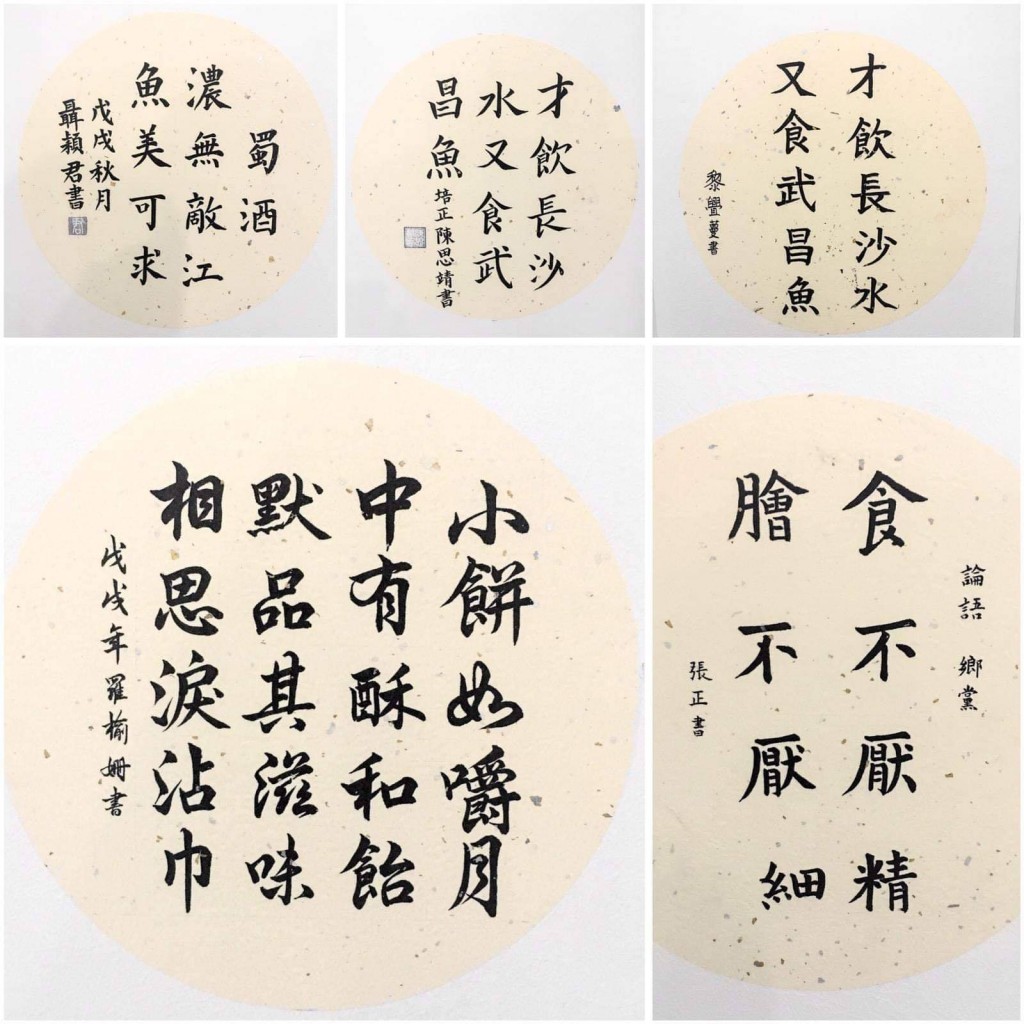 蜀酒
濃無敵江
魚美可求
戊戌秋月
聶穎君書
才飲長沙
水又食武
昌魚
培正陳思靖書
才飲長沙水
又食武昌魚
黎
書
小餅如嚼月
中有酥和飴
默品其滋味
相思淚沾巾
戊戌年羅榆姍書
論語 鄉黨
食不厭精
膾不厭細
張正書